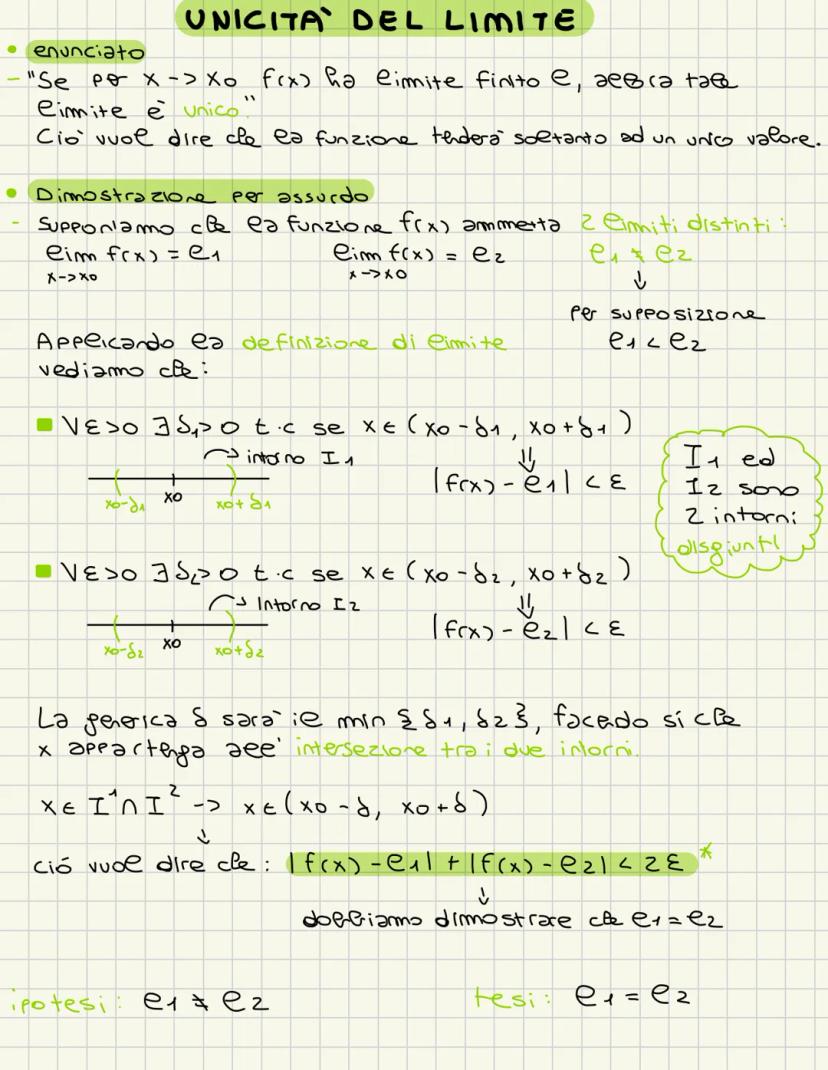 UNICITA' DEL LIMITE
• enunciato
- "Se per x -> x0 f(x) ha limite finito l, allora tale
limite è unico."
Ciò vuol dire che la funzione tenderà soltanto ad un unico valore.
• Dimostrazione per assurdo
- Supponiamo che la funzione f(x) ammetta 2 limiti distinti:
lim f(x) = l1 lim f(x) = l2 l1 ≠ l2
x->x0 x->x0 ↓
per supposizione
l1 < l2
Applicando la definizione di limite
vediamo che:
∀ε>0 ∃δ1>0 t.c se x∈(x0-δ1, x0+δ1)
intorno I1 ⇓
|f(x)-l1| < ε
x0-δ1 x0 x0+δ1
I1 ed
I2 sono
2 intorni
disgiunti
∀ε>0 ∃δ2>0 t.c se x∈(x0-δ2, x0+δ2)
Intorno I2 ⇓
|f(x)-l2| < ε
x0-δ2 x0 x0+δ2
La generica δ sarà il min {δ1, δ2}, facendo sí che
x appartenga all' intersezione tra i due intorni.
x∈ I¹∩I² -> x∈(x0-δ, x0+δ)
↓
ció vuol dire che: |f(x)-l1|+|f(x)-l2| < 2ε *
↓
dobbiamo dimostrare che l1=l2
ipotesi: l1 ≠ l2 tesi: l1 = l2